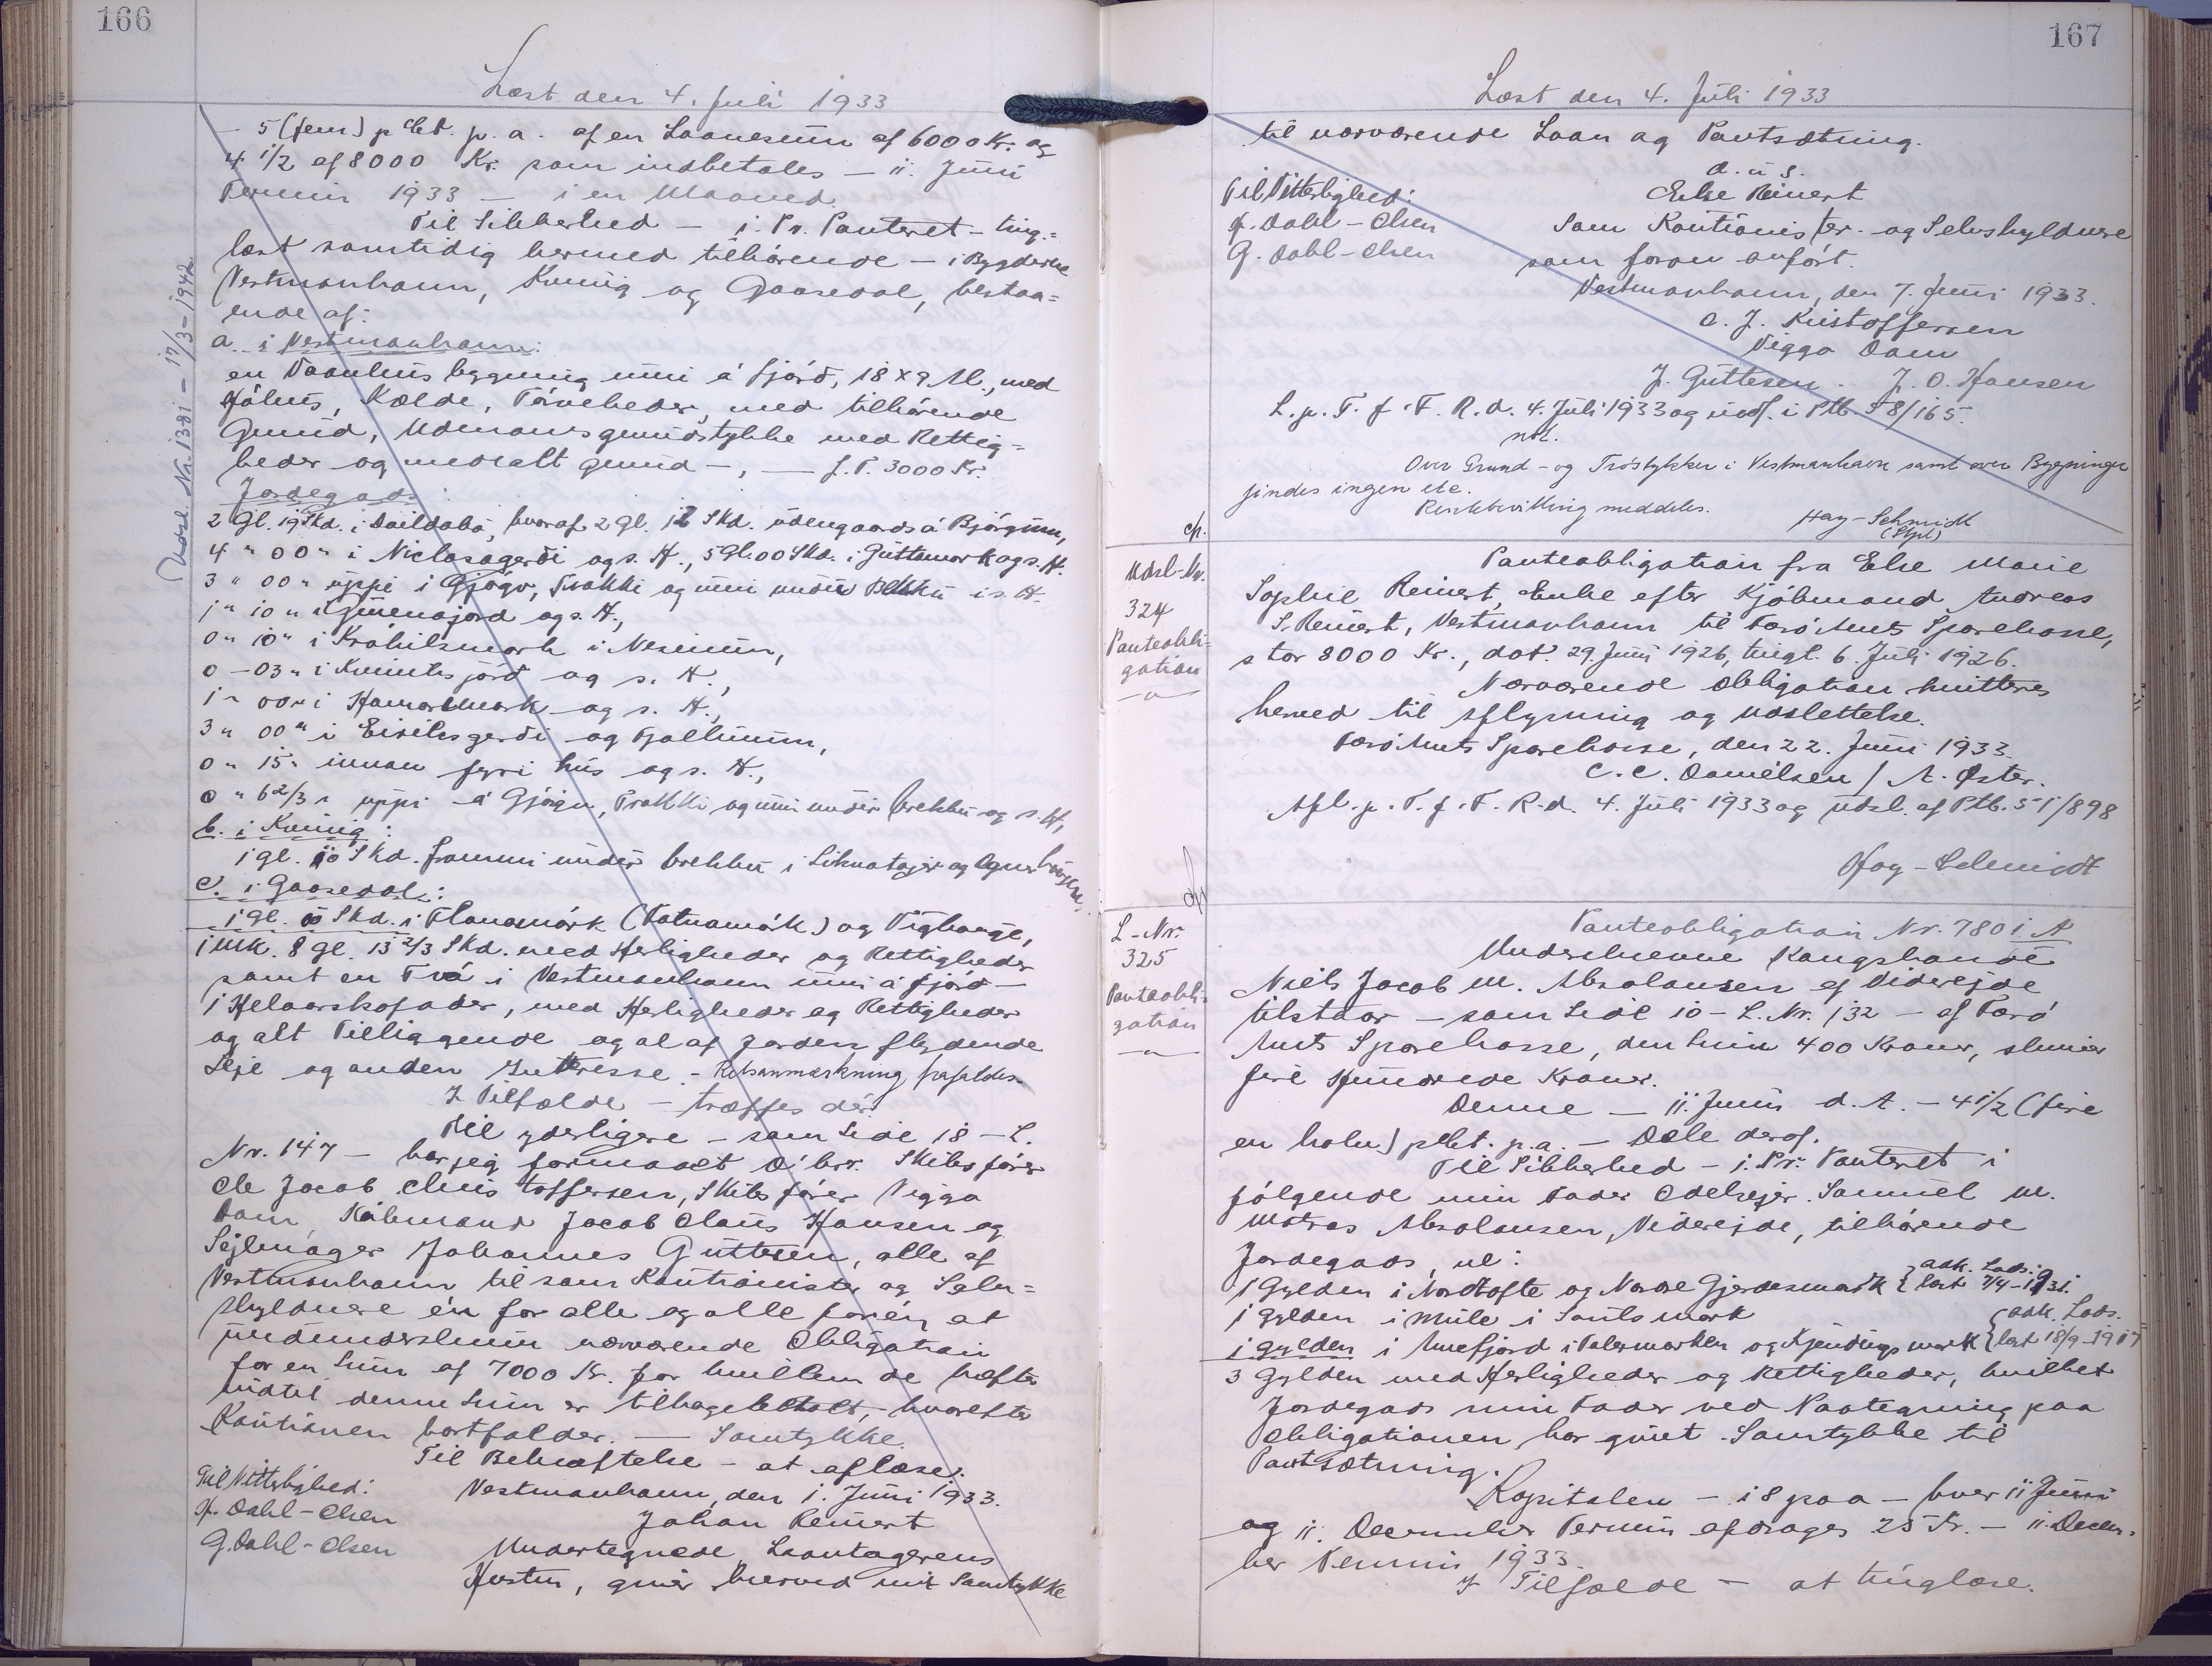 166
Læst den 4. Juli 1933
Udsl. Nr. 1381 – 17/3 – 1942
– 5 (fem) pCt. p. a. af en Laanesum af 6000 Kr. og
4 1/2 af 8000 Kr. som indbetales – 11. Juni
Termin 1933 – i en Maaned.
Til Sikkerhed – i. Pr. Panteret – ting-
læst samtidig hermed tilhørende – i Bygderne
Vestmanhavn, Kvivig og Gaasedal, bestaa-
ende af:
a. i Vestmanhavn:
en Vaanhus bygning inni á fjørð, 18 x 9 Al., med
Hjálhus, Kælde, Tørveheder, med tilhørende
Grund, Udmarksgrundstykke med Rettig-
heder og medialt grund –, – f. T. 3000 Kr.
Jordegods
2 Gl. 19 Skd. i Dalidabø, hvoraf 2 gl. 12 Skd. udengaards á Bjørgum,
4 " 00 " i Niclasagerði og s. H., 5 Gl. 00 Skd. i Guttumørk og s. H.
3 " 00 " uppi i Gjógv, Trøkki og inni undir Bekku i s. H.
1 " 10 " i Gunnajørd og s. H.,
0 " 10 " i Krohilsmørk i Nesinum,
0 – 03 " i Kvinilsjørd og s. H.,
1 " 00 " i Hamarsmørk og s. H.,
3 " 00 " i Eiriksgerði og Fjallinum,
0 " 15 " innan fyri hús og s. H.,
0 " 6 2/3 " uppi á Gjógv, Trøkki og inni undir brekku og s. H,
b. i Kvivig:
1 gl. 10 Skd. frammi undir brekku i Liknatoyg og
c. i Gaasedal:
1 gl. 00 Skd. i Flanamørk (Vatnamørk) og Víghage,
1 Mk. 8 gl. 13 2/3 Skd. med Herligheder og Rettigheder
samt en Tvá i Vestmanhavn inni á fjørð –
1 Helaarskofoder, med Herligheder og Rettigheder
og alt Tilliggende og al af Jorden flydende
Leje og anden Interesse. – Retsanmærkning frafaldes.
I Tilfælde – træffes der.
Til yderligere – som Side 18 – L.
Nr. 147 – har jeg formaaet D'hrr. Skibsfører
Ole Jacob Christoffersen, Skibsfører Viggo
Dam, Købmand Jacob Claus Hansen og
Sejlmager Johannes Guttesen, alle af
Vestmanhavn til som Kautionister og Selv-
skyldnere én for alle og alle for én at
medunderskrive nærværende Obligation
for en Sum af 7000 Kr. for hvilken de hæfte
indtil denne Sum er tilbagebetalt, hvorefter
Kautionen bortfalder. – Samtykke.
Til Bekræftelse – at aflæse.
Til Vitterlighed:
Vestmanhavn, den 1. Juni 1933.
J. Dahl-Olsen
Johan Reinert
G. Dahl-Olsen
Undertegnede, Laantagerens
Hustru, giver herved mit Samtykke
167
Læst den 4. Juli 1933
til nærværende Laan og Pantsætning.
D. u. s.
Til Vitterlighed:
Else Reinert
J. Dahl-Olsen
Som Kautionister og Selvskyldnere
G. Dahl-Olsen
som foran anført.
Vestmanhavn, den 7. Juni 1933.
O. J. Kristoffersen
Viggo Dam
J. Guttesen. J. O. Hansen
L. p. T. f. F. R. d. 4. Juli 1933 og indf. i Ptb. 58/165.
not.
Over Grund- og Træstykker i Vestmanhavn samt over Bygninger
findes ingen etc.
Rentebevilling meddeles.
Hay-Schmidt
(Styd)
Udsl-Nr.
324
Panteobli-
gation
– " –
Panteobligation fra Else Marie
Sophie Reinert, Enke efter Kjøbmand Andreas
S. Reinert, Vestmanhavn til Færø Amts Sparekasse,
stor 8000 Kr., dat. 29. Juni 1926, tingl. 6. Juli 1926.
Nærværende Obligation kvitteres
herved til Aflysning og Udslettelse.
Færø Amts Sparekasse, den 22. Juni 1933.
C. C. Danielsen / A. Øster.
Afl. p. T. f. F. R. d. 4. Juli 1933 og udsl. af Ptb. 51/898
Hay-Schmidt
L-Nr.
325
Panteobli-
gation
– " –
Panteobligation Nr. 7801 A
Underskrevne Kongsbonde
Niels Jacob M. Absalonsen af Viderejde
tilstaar – som Side 10 – L. Nr. 132 – af Færø
Amts Sparekasse, den Sum 400 Kroner, skriver
fire Hundrede Kroner.
Denne – 11. Juni d. A. – 4 1/2 (fire
en halv) pCt. p. a. – Dele deraf.
Til Sikkerhed – i. Pr. Panteret i
følgende min Fader Odelsejer Samuel M.
Matras Absalonsen, Viderejde, tilhørende
Jordegods, nl:
1 Gylden i Nordtofte og Nordre Gjerdesmark { adk. Lods. læst 7/4-1931.
1 Gylden i Mule i Sauls mark
1 Gylden i Arnefjord i Valsmarken og Kjendings mark { adk. Lods. læst 18/9-1917
3 Gylden med Herligheder og Rettigheder, hvilket
Jordegods min Fader ved Paategning paa
Obligationen har givet Samtykke til
Pantsætning.
Kapitalen – 18 paa – hver 11 Juni
og 11. December Termin afdrages 25 Kr. – 11. Decem-
ber Termin 1933.
I Tilfælde – at tinglæse.